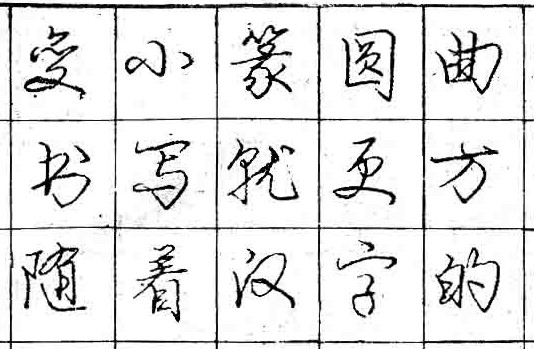 变小篆圆曲
书写就更方
随着汉字的